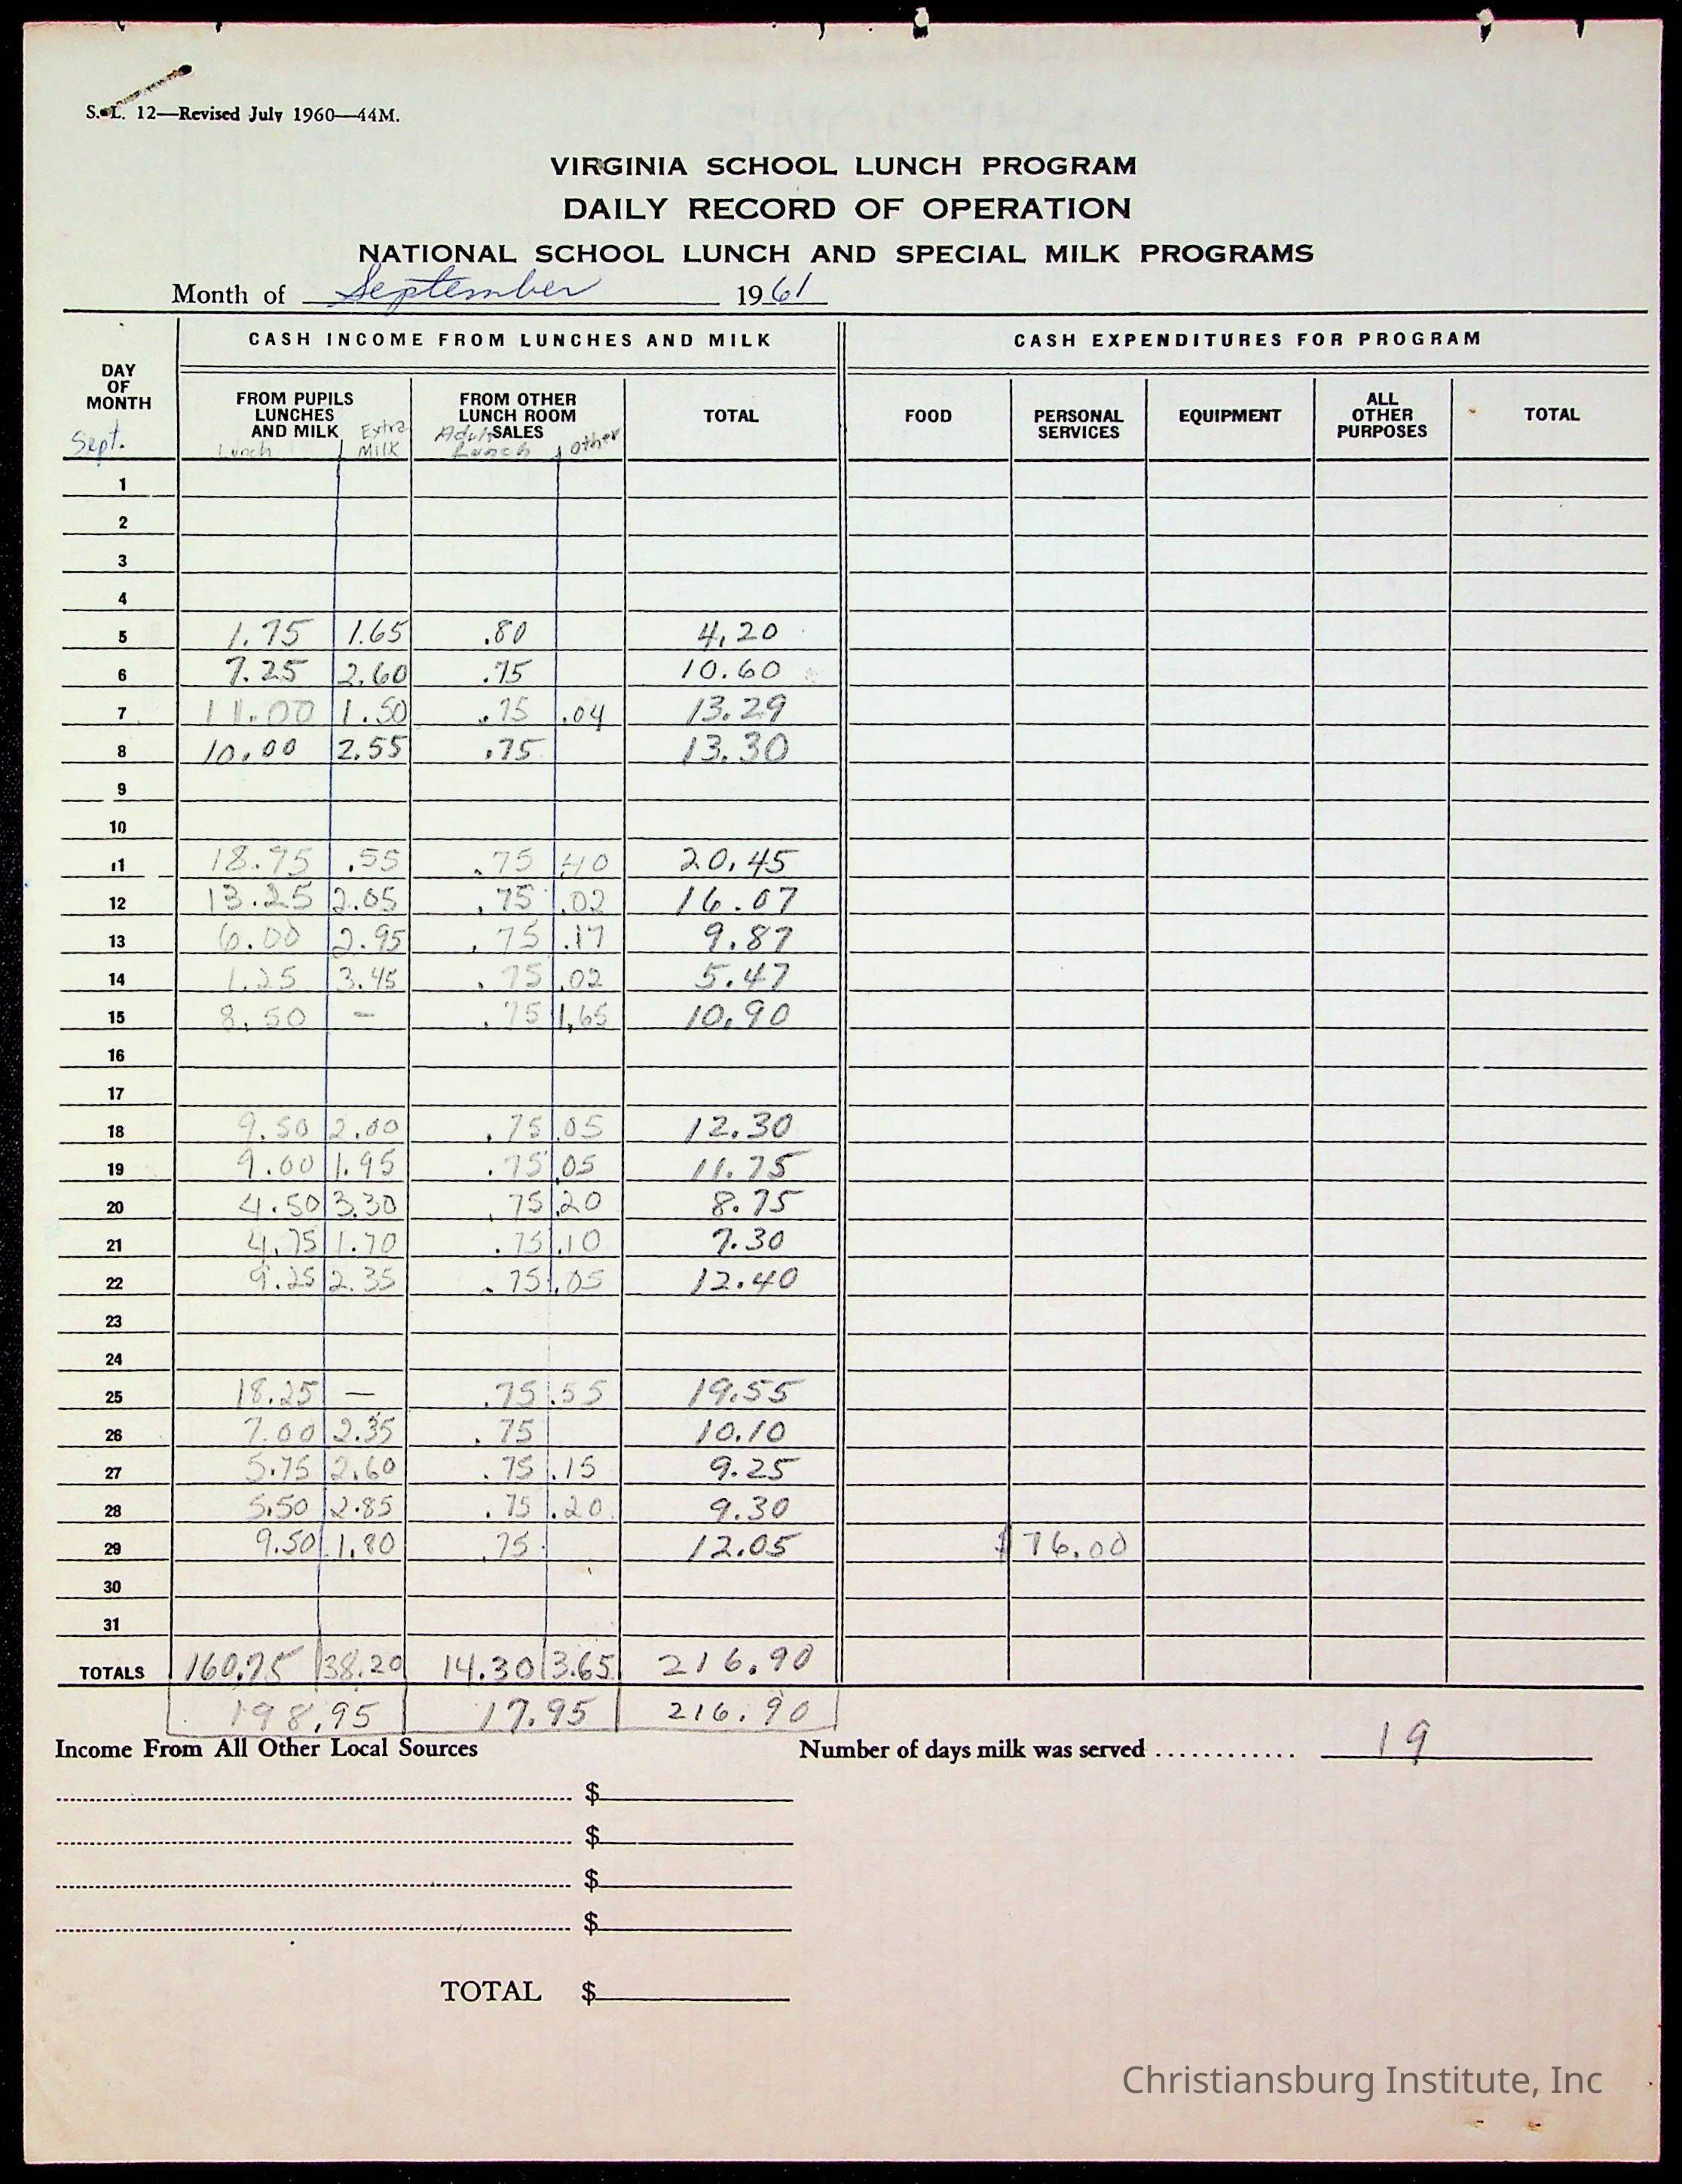 S. L. 12—Revised July 1960—44M.
VIRGINIA SCHOOL LUNCH PROGRAM
DAILY RECORD OF OPERATION
NATIONAL SCHOOL LUNCH AND SPECIAL MILK PROGRAMS
Month of September 1961
CASH INCOME FROM LUNCHES AND MILK CASH EXPENDITURES FOR PROGRAM
DAY OF MONTH Sept. FROM PUPILS LUNCHES AND MILK Lunch Extra Milk FROM OTHER LUNCH ROOM SALES Adult Lunch Other TOTAL FOOD PERSONAL SERVICES EQUIPMENT ALL OTHER PURPOSES TOTAL
1
2
3
4
5 1.75 1.65 .80 4.20
6 7.25 2.60 .75 10.60
7 11.00 1.50 .75 .04 13.29
8 10.00 2.55 .75 13.30
9
10
11 18.75 .55 .75 .40 20.45
12 13.25 2.05 .75 .02 16.07
13 6.00 2.95 .75 .17 9.87
14 1.25 3.45 .75 .02 5.47
15 8.50 — .75 1.65 10.90
16
17
18 9.50 2.00 .75 .05 12.30
19 9.00 1.95 .75 .05 11.75
20 4.50 3.30 .75 .20 8.75
21 4.75 1.70 .75 .10 7.30
22 9.25 2.35 .75 .05 12.40
23
24
25 18.25 — .75 .55 19.55
26 7.00 2.35 .75 10.10
27 5.75 2.60 .75 .15 9.25
28 5.50 2.85 .75 .20 9.30
29 9.50 1.80 .75 12.05 $76.00
30
31
TOTALS 160.75 38.20 14.30 3.65 216.90
198.95 17.95 216.90
Income From All Other Local Sources Number of days milk was served ............ 19
$
$
$
$
TOTAL $
Christiansburg Institute, Inc